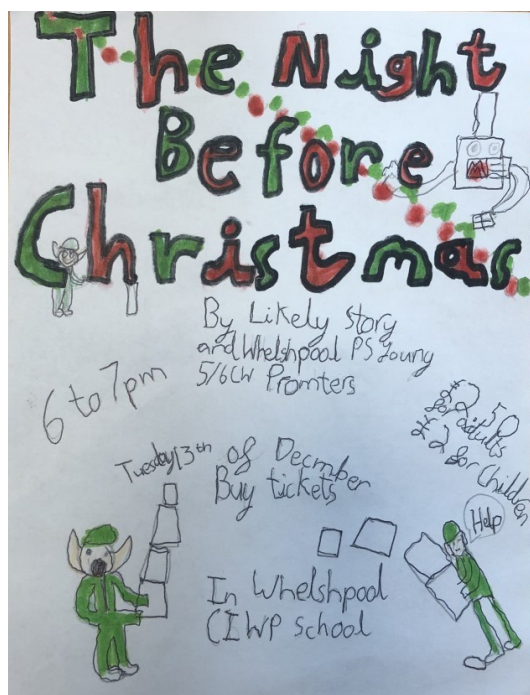 The Night
Before
Christmas
By Likely story
and Whelshpool PS Young
5/6CW Promters
6 to 7pm
2.50
for adults
2 for children
Tuesday 13th of Decmber
Buy tickets
Help
In Whelshpool
CIWP School